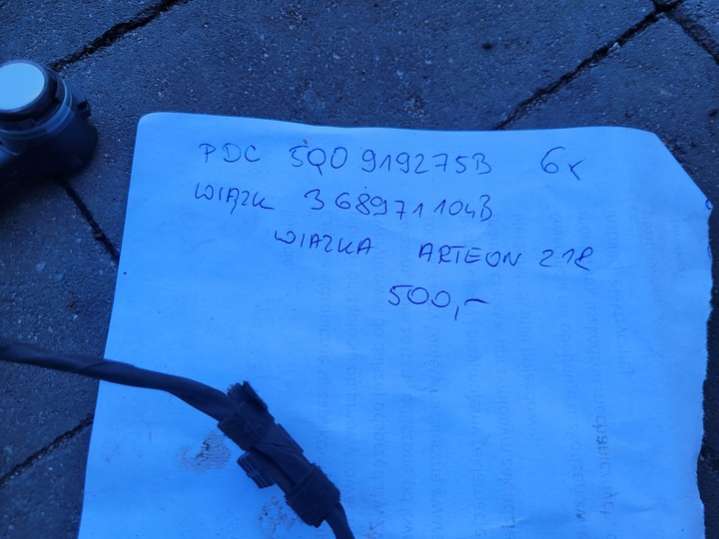 PDC 5Q0919275B 6x
WIĄZK 3G8971104B
WIAZKA ARTEON 218
500,-